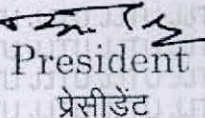 President
प्रेसीडेंट